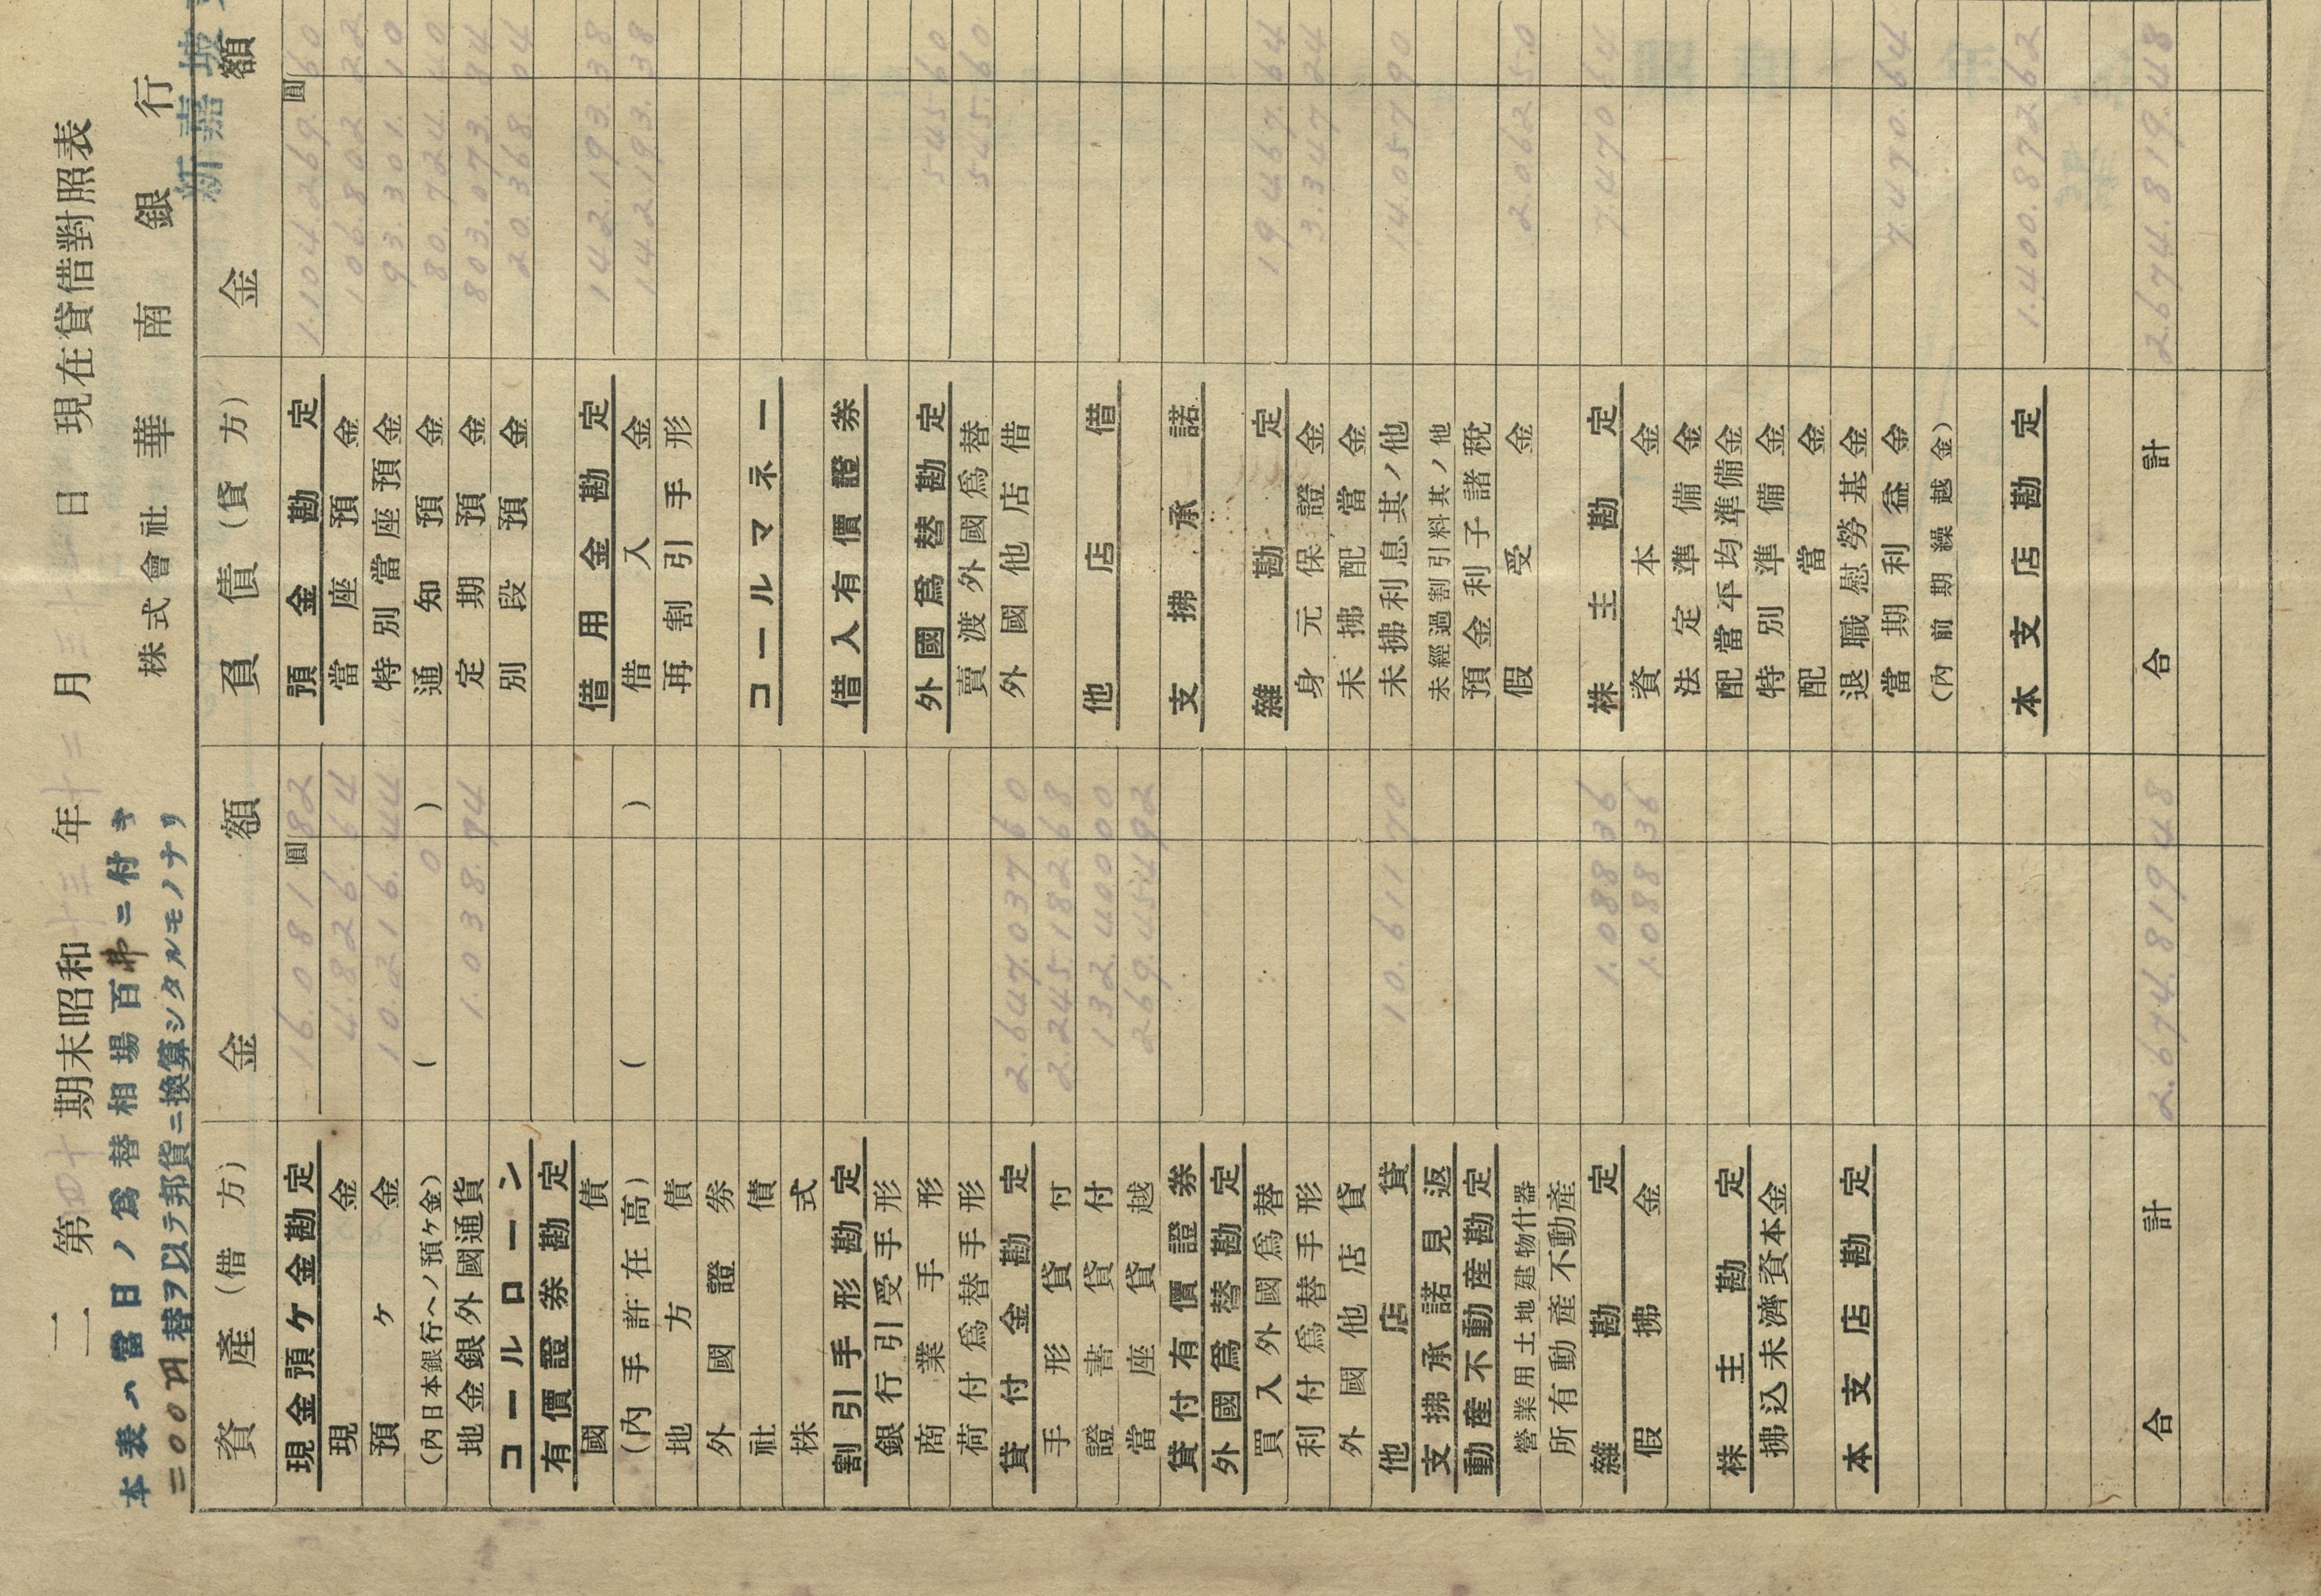 二 第四十 期末昭和十三年十二月三十一日現在貸借對照表
本表ハ當日ノ為替相場百弗ニ付キ
二〇〇円替ヲ以テ邦貨ニ換算シタルモノナリ
株式會社華南銀行
新嘉坡
資產(借方) 金額
現金預ケ金勘定 16.081 圓 82
現金 4.826. 64
預ケ金 10.216. 44
(內日本銀行ヘノ預ケ金) ( 0 )
地金銀外國通貨 1.038. 74
コールローン
有價證券勘定
國債
(內手許在高) ( )
地方債
外國證券
社債
株式
割引手形勘定
銀行引受手形
商業手形
荷付爲替手形
貸付金勘定 2.647.037 60
手形貸付 2.245.182 68
證書貸付 132.400 00
當座貸越 269.454 92
貸付有價證券
外國爲替勘定
買入外國爲替
利付爲替手形
外國他店貸
他店貸 10.611 70
支拂承諾見返
動產不動產勘定
營業用土地建物什器
所有動產不動產
雜勘定 1.088 36
假拂金 1.088 36
株主勘定
拂込未濟資本金
本支店勘定
合計 2.674.819 48
負債(貸方) 金額
預金勘定 1.104.269. 圓 60
當座預金 106.802 22
特別當座預金 93.301. 10
通知預金 80.724. 40
定期預金 803.073. 84
別段預金 20.368. 04
借用金勘定 142.193. 38
借入金 142.193. 38
再割引手形
コールマネー
借入有價證券
外國爲替勘定 545 60
賣渡外國爲替 545. 60
外國他店借
他店借
支拂承諾
雜勘定 19.467. 64
身元保證金 3.347 24
未拂配當金
未拂利息其ノ他 14.057 90
未經過割引料其ノ他
預金利子諸稅
假受金 2.062 50
株主勘定 7.470 64
資本金
法定準備金
配當平均準備金
特別準備金
配當金
退職慰勞基金
當期利益金 7.470. 64
(內前期繰越金)
本支店勘定 1.400.872 62
合計 2.674.819. 48